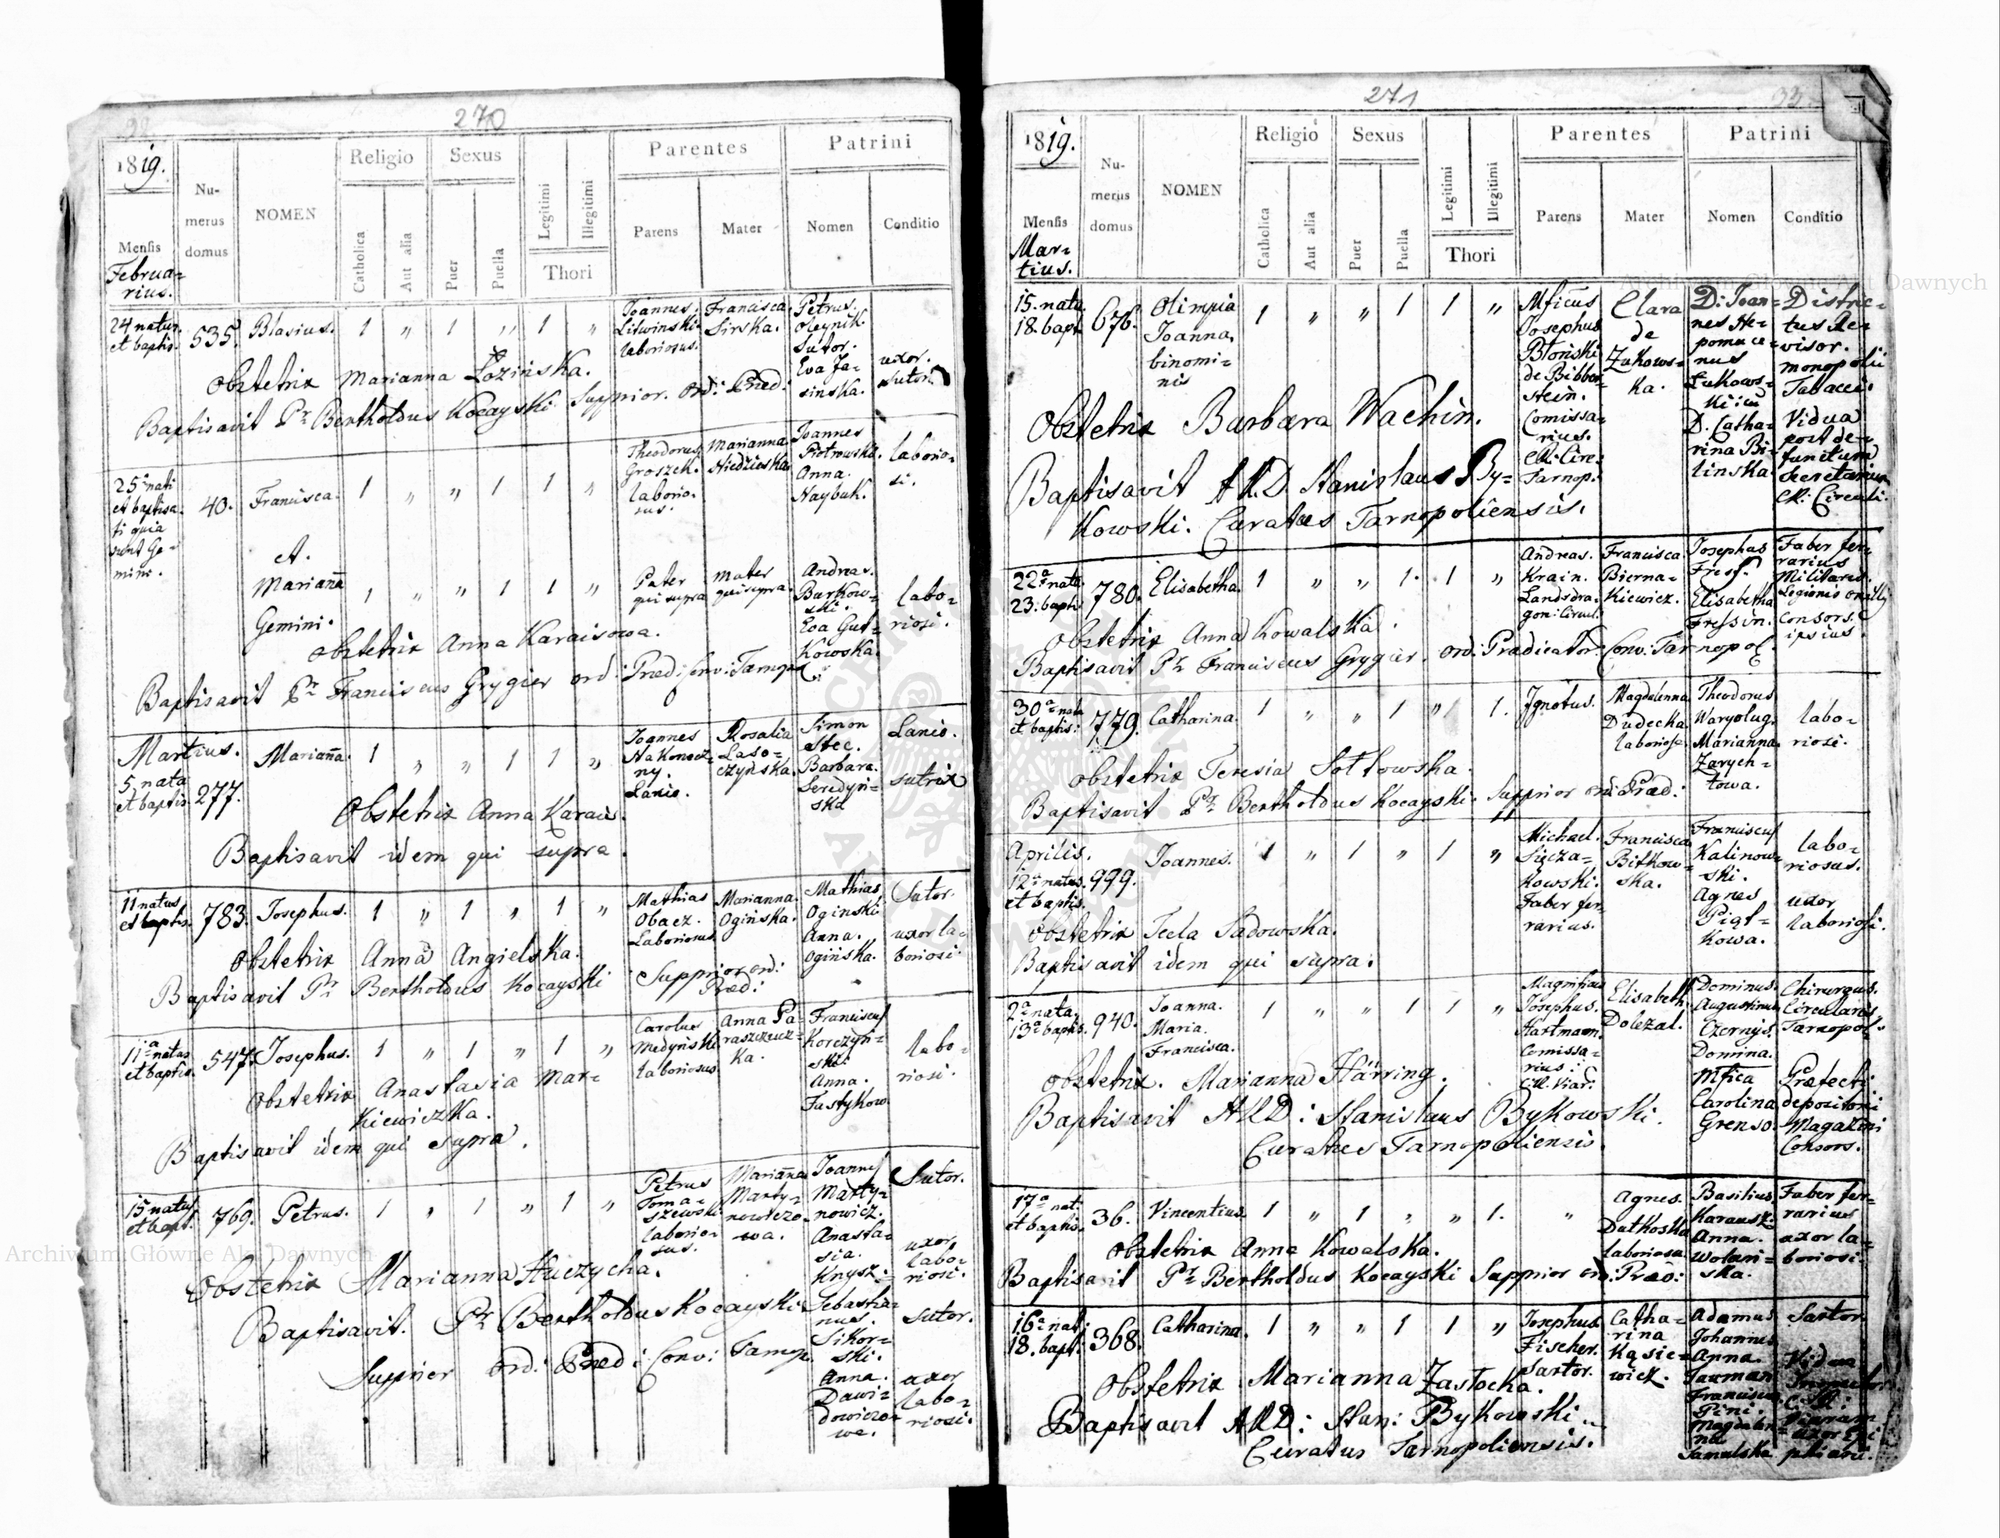 270
1819.
Mensis
Februa-
rius.
Nu-
merus
domus
NOMEN
Religio
Catholica
Aut alia
Sexus
Puer
Puella
Legitimi
Illegitimi
Thori
Parentes
Parens
Mater
Patrini
Nomen
Conditio
24 natus
et baptis.
535.
Blasius.
1 „ 1 „ 1 „
Joannes
Litwinski
laboriosus.
Francisca
Sirska.
Petrus
Oleynik
Sutor.
Eva Ja-
sinska.
uxor.
Sutor.
Obstetrix Marianna Łozinska.
Baptisavit Pr Bertholdus Kocayski Supprior. ord: Præd:
25 nati
et baptisa-
ti quia
sunt Ge-
mini.
40.
Francisca.
1 „ „ 1 1 „
Theodorus
Groszek.
laborio-
sus.
Marianna
Joannes
Piotrowski.
Anna.
Haybuk.
laborio-
si.
et.
Marianna
Gemini.
1 „ „ 1 1 „
Pater
qui supra
Mater
qui supra.
Andreas.
Burkow-
ski.
Eva Gut-
kowska.
labo-
riosi.
Obstetrix Anna Karaisowa.
Baptisavit Pr Franciscus Grygier ord: Præd: Conv: Tarnopol:
Martius.
5 nata
et baptis.
277.
Marianna.
1 „ „ 1 1 „
Joannes
Nakonecz-
ny.
Lanio.
Rosalia
Laso-
czynska.
Simon
Stec.
Barbara
Seredyn-
ska
Lanio.
sutrix
Obstetrix Anna Karais.
Baptisavit idem qui supra.
11 natus
et baptis.
783.
Josephus.
1 „ 1 „ 1 „
Mathias
Obacz.
Laboriosus
Marianna
Oginska.
Mathias
Oginski.
Anna.
Oginska.
Sutor.
uxor la-
boriosi.
Obstetrix Anna Angielska.
Baptisavit Pr Bertholdus Kocayski Supprior ord:
Præd:
11a natus
et baptis.
547.
Josephus.
1 „ 1 „ 1 „
Carolus
Medynski
laboriosus
Anna Pa-
raszczuz-
ka.
Franciscus
Korczyn-
ski.
Anna.
Fastykow.
labo-
riosi.
Obstetrix Anastasia Mar-
kiewiczka.
Baptisavit idem qui supra.
15 natus
et bapt.
769.
Petrus.
1 „ 1 „ 1 „
Petrus
Toma-
szewski
laborio-
sus.
Marianna
Marty-
nowiczo-
wa.
Joannes
Marty-
nowicz.
Anasta-
sia.
Knysz.
Sutor.
uxor
labo-
riosi.
Obstetrix Marianna Huczycha.
Sebastia-
nus.
Sikor-
ski.
Anna.
Dawi-
dowiczo-
wa.
Sutor.
uxor
labo-
riosi.
Baptisavit. Pr Bertholdus Kocayski
Supprior ord: Præd: Conv: Tarnop.
271
1819.
Mensis
Mar-
tius.
Nu-
merus
domus
NOMEN
Religio
Catholica
Aut alia
Sexus
Puer
Puella
Legitimi
Illegitimi
Thori
Parentes
Parens
Mater
Patrini
Nomen
Conditio
15. nata
18. bapt.
676.
Olimpia
Joanna,
binomi-
nis
1 „ „ 1 1 „
Mficus
Josephus
Błoński
de Bibber-
stein.
Comissa-
rius.
CR: Circ:
Tarnop.
Clara
de
Zukows-
ka.
D: Joan-
nes Ne-
pomuce-
nus
Łukows-
ki: et
D. Catha-
rina Bi-
linska.
Distric-
tus Re-
visor.
monopolii
Tabacci.
Vidua
post de-
functum
Secretarium
CR: Circuli.
Obstetrix Barbara Wachin.
Baptisavit A.R.D. Stanislaus By-
kowski. Curatus Tarnopoliensis.
22a nata
23. bapt.
780.
Elisabetha.
1 „ „ 1. 1 „
Andreas.
Krain.
Landsdra-
gon: Circul:
Francisca
Bierna-
kiewicz.
Josephus
Fress.
Elisabetha
Fressin.
Faber fer-
rarius
Militaris.
Consors.
ipsius.
Obstetrix Anna Kowalska.
Baptisavit Pr Franciscus Grygier. ord: Prædicator: Conv: Tarnopol.
30a nata
et baptis:
779.
Catharina.
1 „ „ 1 „ 1.
Ignotus.
Magdalenna
Dudecka
laboriosa.
Theodorus
Waryolug.
Marianna.
Zarych-
towa.
labo-
riosi.
Obstetrix Teresia Sottowska.
Baptisavit Pr Bertholdus Kocayski Supprior ord: Præd:
Aprilis.
12a natus.
et baptis.
999.
Joannes.
1 „ 1 „ 1 „
Michael.
Sicza-
kowski.
Faber fer-
rarius.
Francisca
Bitkow-
ska.
Franciscus
Kalinow-
ski.
Agnes
Piąt-
kowa.
labo-
riosus.
uxor
laboriosi.
Obstetrix Tecla Sadowska.
Baptisavit idem qui supra.
2a nata
13a baptis.
940.
Joanna.
Maria.
Francisca.
1 „ „ 1 1 „
Magnificus
Josephus.
Hartmann.
Comissa-
rius:
CR. Viar:
Elisabeth
Dolezal.
Dominus.
Augustinus
Czernys.
Domina.
Mfica
Carolina
Grenso.
Chirurgus.
Circularis.
Tarnopol.
Præfecti
depositorii
Magazini
Consors.
Obstetrix. Marianna Härring.
Baptisavit ARD: Stanislaus Bykowski.
Curatus Tarnopoliensis.
17a nat.
et baptis.
36.
Vincentius
1 „ 1 „ „ 1. „
Agnes.
Dutkoska
laboriosa.
Basilius
Karausz.
Anna.
Wolan-
ska.
Faber fer-
rarius
uxor la-
boriosi.
Obstetrix Anna Kowalska.
Baptisavit Pr Bertholdus Kocayski Supprior ord: Præd:
16a nat:
18. bapt.
368.
Catharina.
1 „ „ 1 1 „
Josephus
Fischer.
Sartor.
Catha-
rina
Kąsie-
wicz.
Adamus
Johannes
Anna.
Francisca
Pini.
Sartor
Vidua
Obstetrix Marianna Zastocka.
Baptisavit ARD: Stan: Bykowski.
Curatus Tarnopoliensis.
Archiwum Główne Akt Dawnych
Archiwum Główne Akt Dawnych